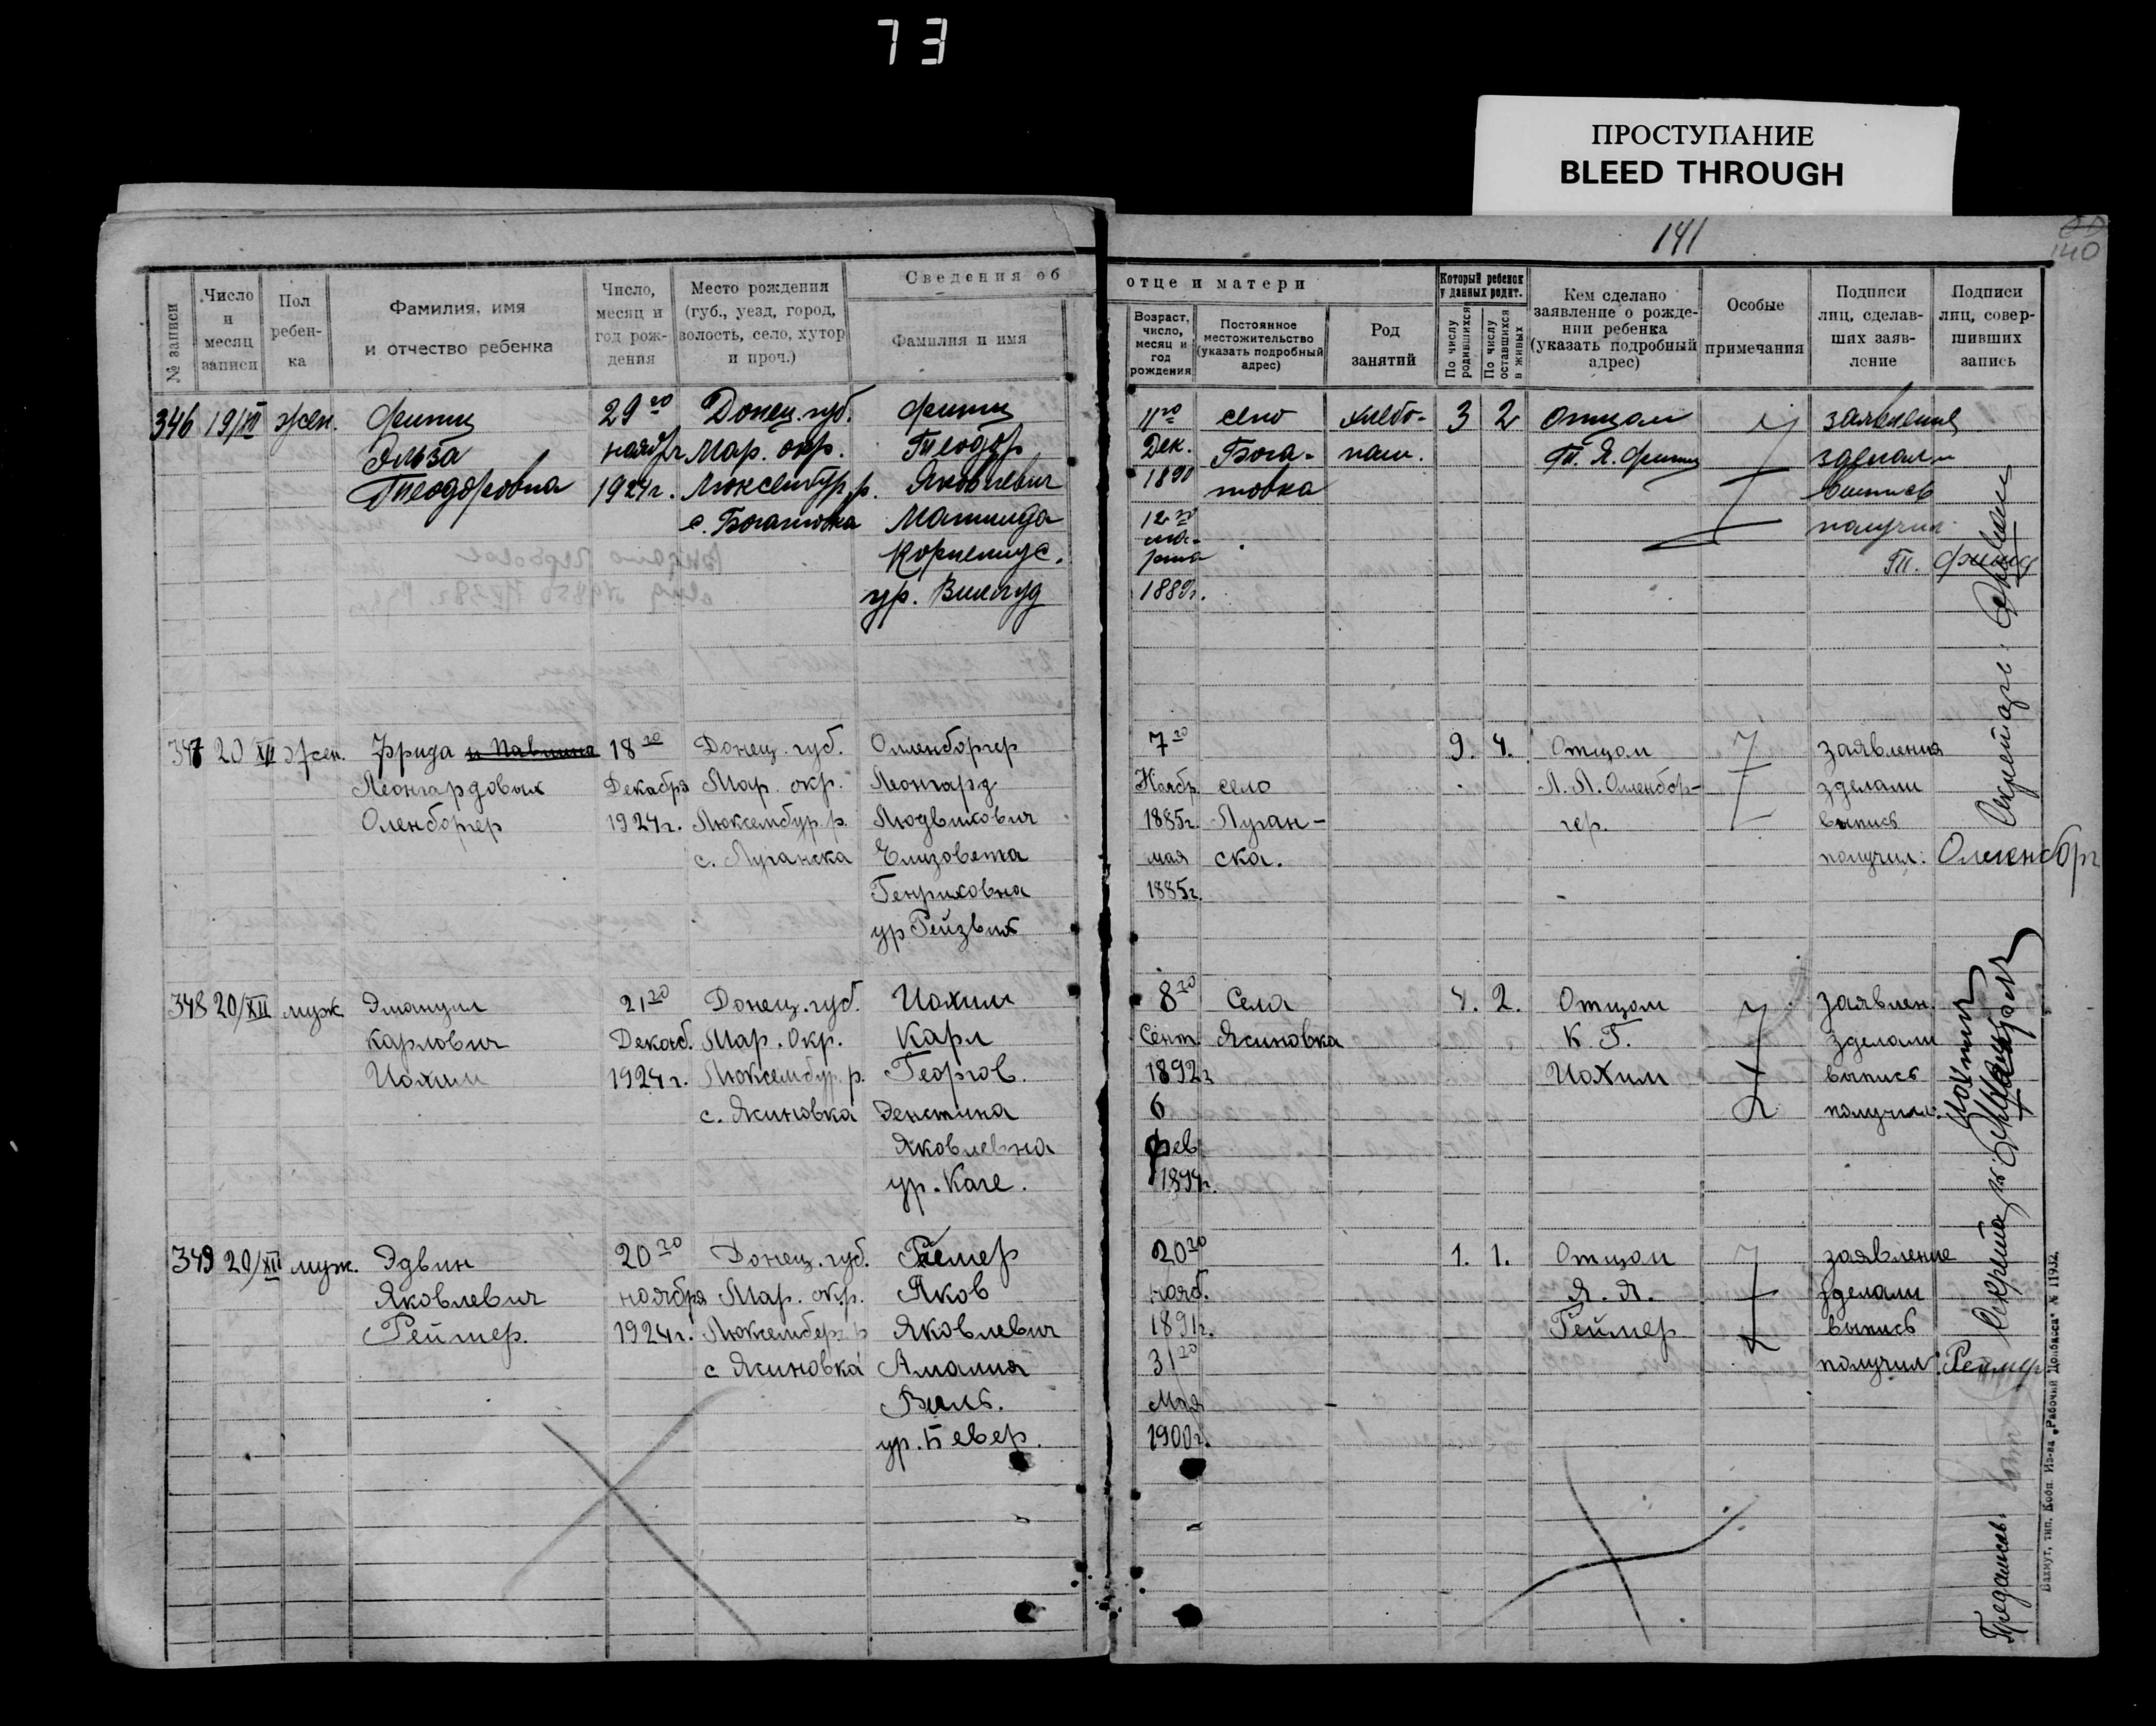 73
ПРОСТУПАНИЕ
BLEED THROUGH
141
140
№ записи
Число и месяц записи
Пол ребен-ка
Фамилия, имя и отчество ребенка
Число, месяц и год рож-дения
Место рождения (губ., уезд, город, волость, село, хутор и проч.)
Сведения об отце и матери
Фамилия и имя
Возраст, число, месяц и год рождения
Постоянное местожительство (указать подробный адрес)
Род занятий
Который ребенок у данных родит.
По числу родившихся
По числу оставшихся в живых
Кем сделано заявление о рожде-нии ребенка (указать подробный адрес)
Особые примечания
Подписи лиц, сделав-ших заяв-ление
Подписи лиц, совер-шивших запись
346 19/XII жен. Фитц 29го Донец. губ. Фитц 11го село хлебо- 3 2 Отцом заявление
Эльза ноября Мар. окр. Теодор Дек. Бога- паш. Т. Я. Фитц зделал
Теодоровна 1924г. Люксембур. р. Яковлевич 1890 товка выпись
с. Богатовка Матильда 12го получил
Корнелиус. марта Т. Фитц
ур. 1889г.
347 20 XII жен. Фрида и Павлина 18го Донец. губ. Оленборгер 7го 9. 4. Отцом заявления
Леонгардовых Декабря Мар. окр. Леонгард Ноябр. село Л. Л. Оленбор- зделали
Оленборгер 1924г. Люксембур. р. Людвикович 1885г. Луган- гер. выпись
с. Луганска Елизовета мая ска. получил:
Генриховна 1885г.
ур Рейзвих
348 20/XII муж Эмануил 21го Донец. губ. Иохим 8го Села 4. 2. Отцом заявлен.
Карлович Декаб. Мар. Окр. Карл Сент. Ясиновка К. Г. зделали
Иохим 1924г. Люксембур. р. Георгов. 1892г Иохим выпись
с. Ясиновка 6 получил.
Яковлевна Фев
ур. Каге. 1894г.
349 20/XII муж. Эдвин 20го Донец. губ. Реймер 20го 1. 1. Отцом заявление
Яковлевич ноября Мар. окр. Яков нояб. Я. Я. зделали
Реймер. 1924г. Люксембер. р Яковлевич 1891г. Реймер выпись
с Ясиновка Амалия 31го получил: Реймер
Виль. Мая
ур. Бевер. 1900г.
Секретарь
Председатель
Бахмут, тип. Кооп. Из-ва „Рабочий Донбасса“ № 11932